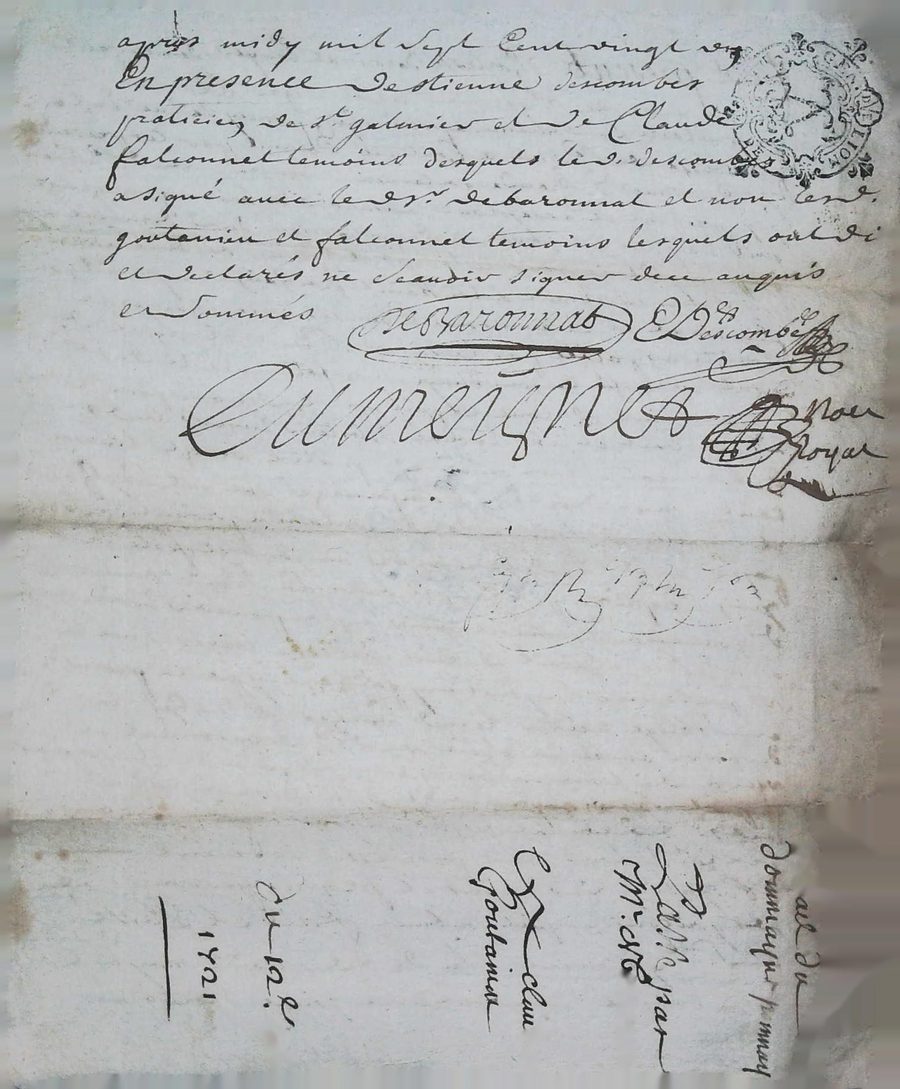 apres midy mil sept Cent vingt
En presence destienne descombes
praticien de st galmier et de Claude
falconnet temoins desquels le d. descombes
a signé avec led. sr. debaronnat et non lesd.
goutanieu et falconnet temoins lesquels ont di
et declarés ne scauoir signer de ce anquis
et sommés
De Baronnat EDescombes
Dumeignet Nore
Royal
ail du
domaayne
Passé par
Mr. de
Et clau
Goutanieu
du 12e
1721